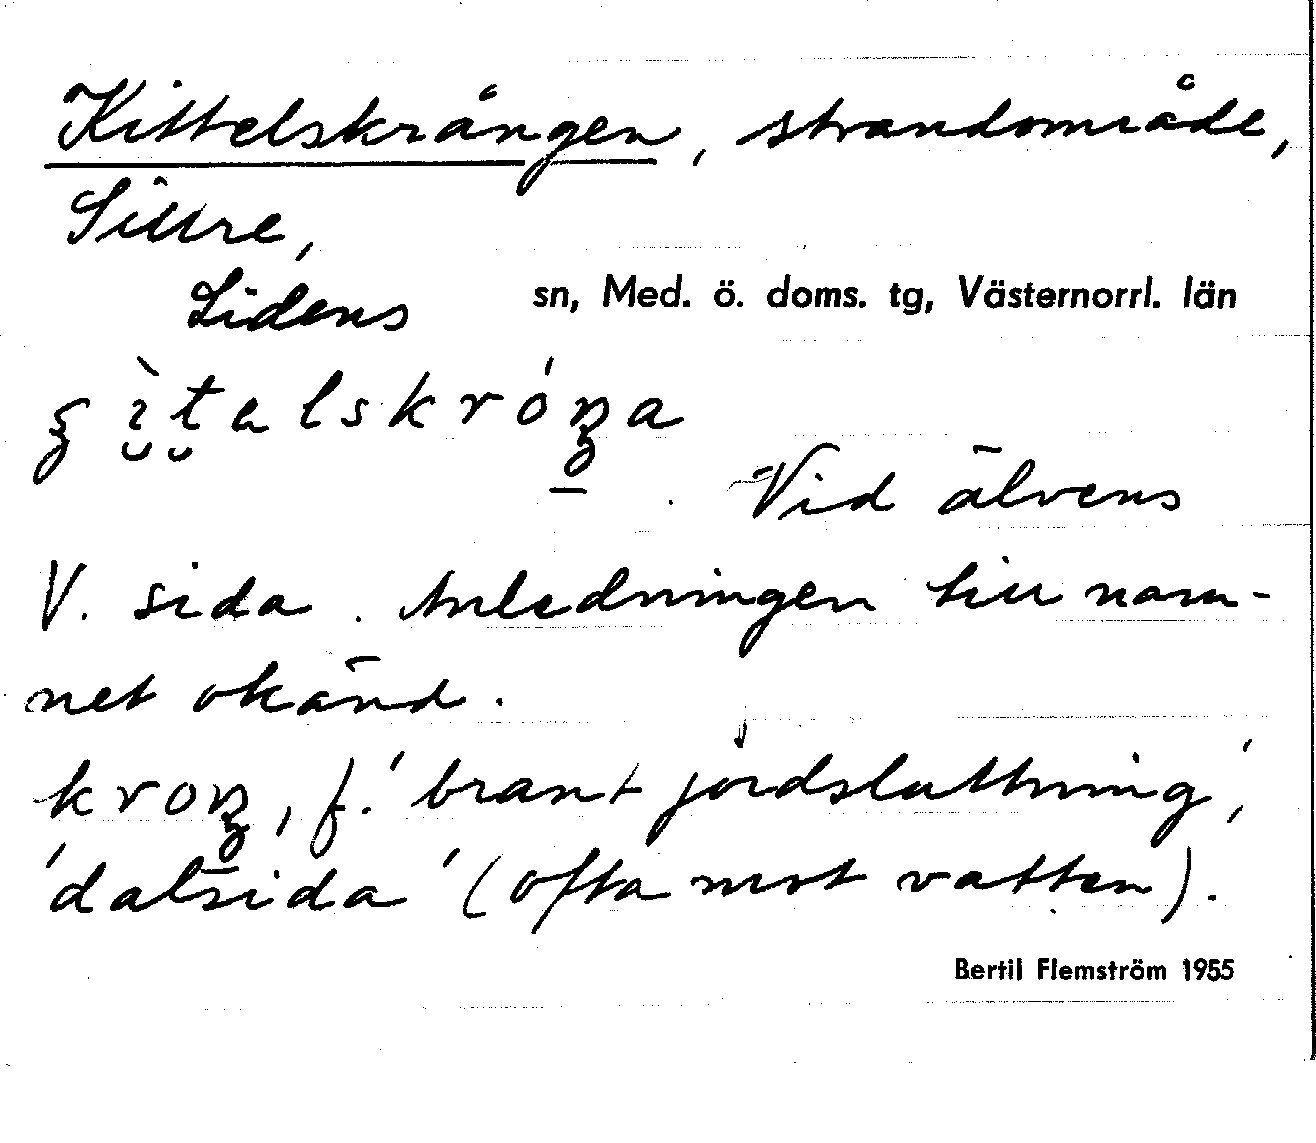 Kittelskrången, strandområde,
Sillre,
Lidens sn, Med. ö. doms. tg, Västernorrl. län
Vid älvens
V. sida. Anledningen till nam-
net okänd.
kroŋ, f. 'brant jordsluttning',
'dalsida' (ofta mot vatten).
Bertil Flemström 1955